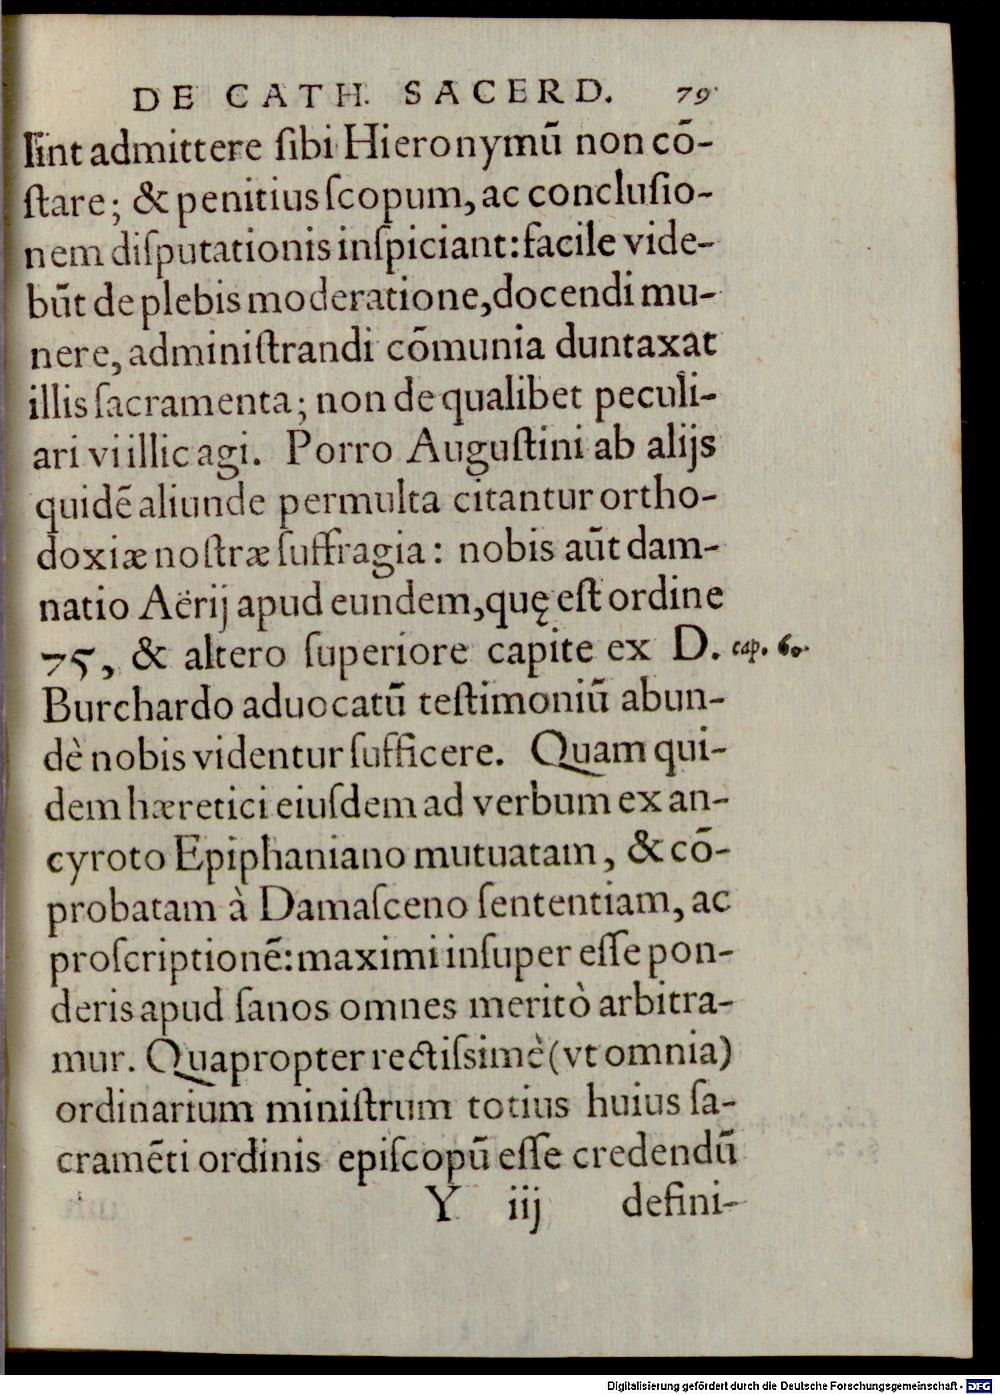 DE CATH. SACERD. 79
lint admittere ſibi Hieronymū non cō-
ſtare; & penitius ſcopum, ac concluſio-
nem diſputationis inſpiciant: facile vide-
būt de plebis moderatione, docendi mu-
nere, adminiſtrandi cōmunia duntaxat
illis ſacramenta; non de qualibet peculi-
ari vi illic agi. Porro Auguſtini ab alijs
quidē aliunde permulta citantur ortho-
doxiæ noſtræ ſuffragia: nobis aūt dam-
natio Aërij apud eundem, quę eſt ordine
75, & altero ſuperiore capite ex D. cap. 60.
Burchardo aduocatū teſtimoniū abun-
dè nobis videntur ſufficere. Quam qui-
dem hæretici eiuſdem ad verbum ex an-
cyroto Epiphaniano mutuatam, & cō-
probatam à Damaſceno ſententiam, ac
proſcriptionē: maximi inſuper eſſe pon-
deris apud ſanos omnes meritò arbitra-
mur. Quapropter rectiſsimè (vt omnia)
ordinarium miniſtrum totius huius ſa-
cramēti ordinis epiſcopū eſſe credendū
Y iij defini-
Digitalisierung gefördert durch die Deutsche Forschungsgemeinschaft - DFG